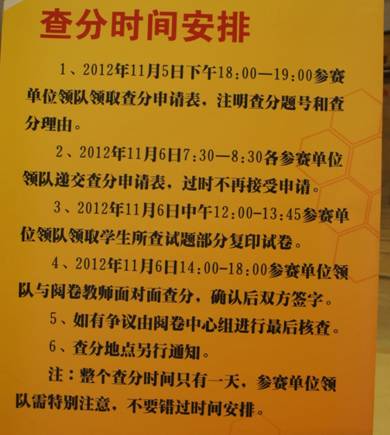 查分时间安排
1、2012年11月5日下午18:00—19:00参赛
单位领队领取查分申请表，注明查分题号和查
分理由。
2、2012年11月6日7:30—8:30各参赛单位
领队递交查分申请表，过时不再接受申请。
3、2012年11月6日中午12:00-13:45参赛单
位领队领取学生所查试题部分复印试卷。
4、2012年11月6日14:00-18:00参赛单位领
队与阅卷教师面对面查分，确认后双方签字。
5、如有争议由阅卷中心组进行最后核查。
6、查分地点另行通知。
注：整个查分时间只有一天，参赛单位领
队需特别注意，不要错过时间安排。